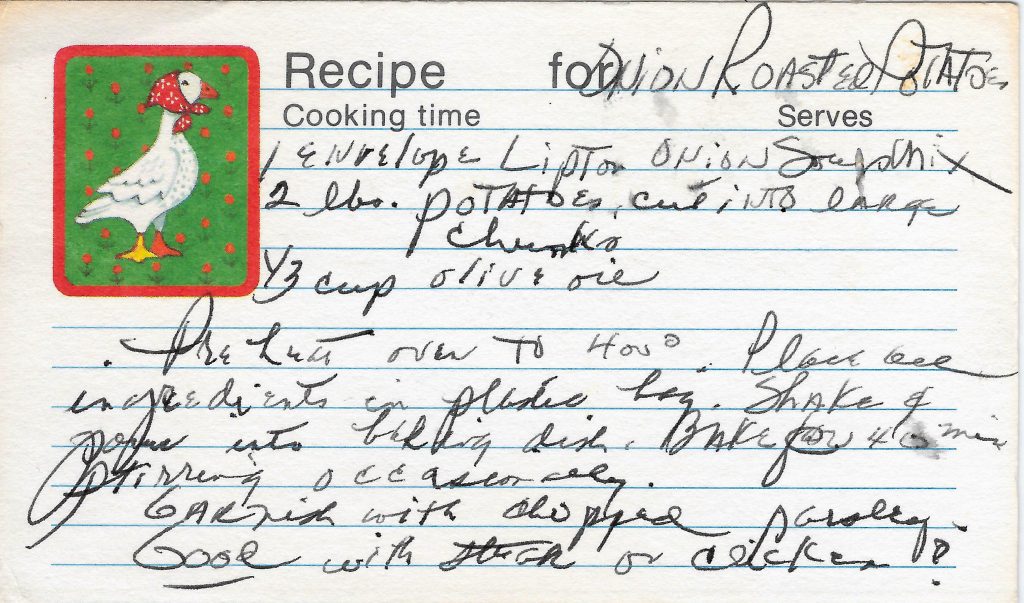 Recipe for ONION ROASTED POTATOES
Cooking time Serves
1 ENVElope LIPTON ONION Soup Mix
2 lbs. POTATOES, cut INTO large
chunks
1/3 cup olive oil
. PREheat oven TO 400° . Place all
ingredients in plastic bag. SHAKE &
pour into baking dish. BAKE for 40 min
stirring occasionally.
GARNish with chopped parsley.
Good with steak or chicken